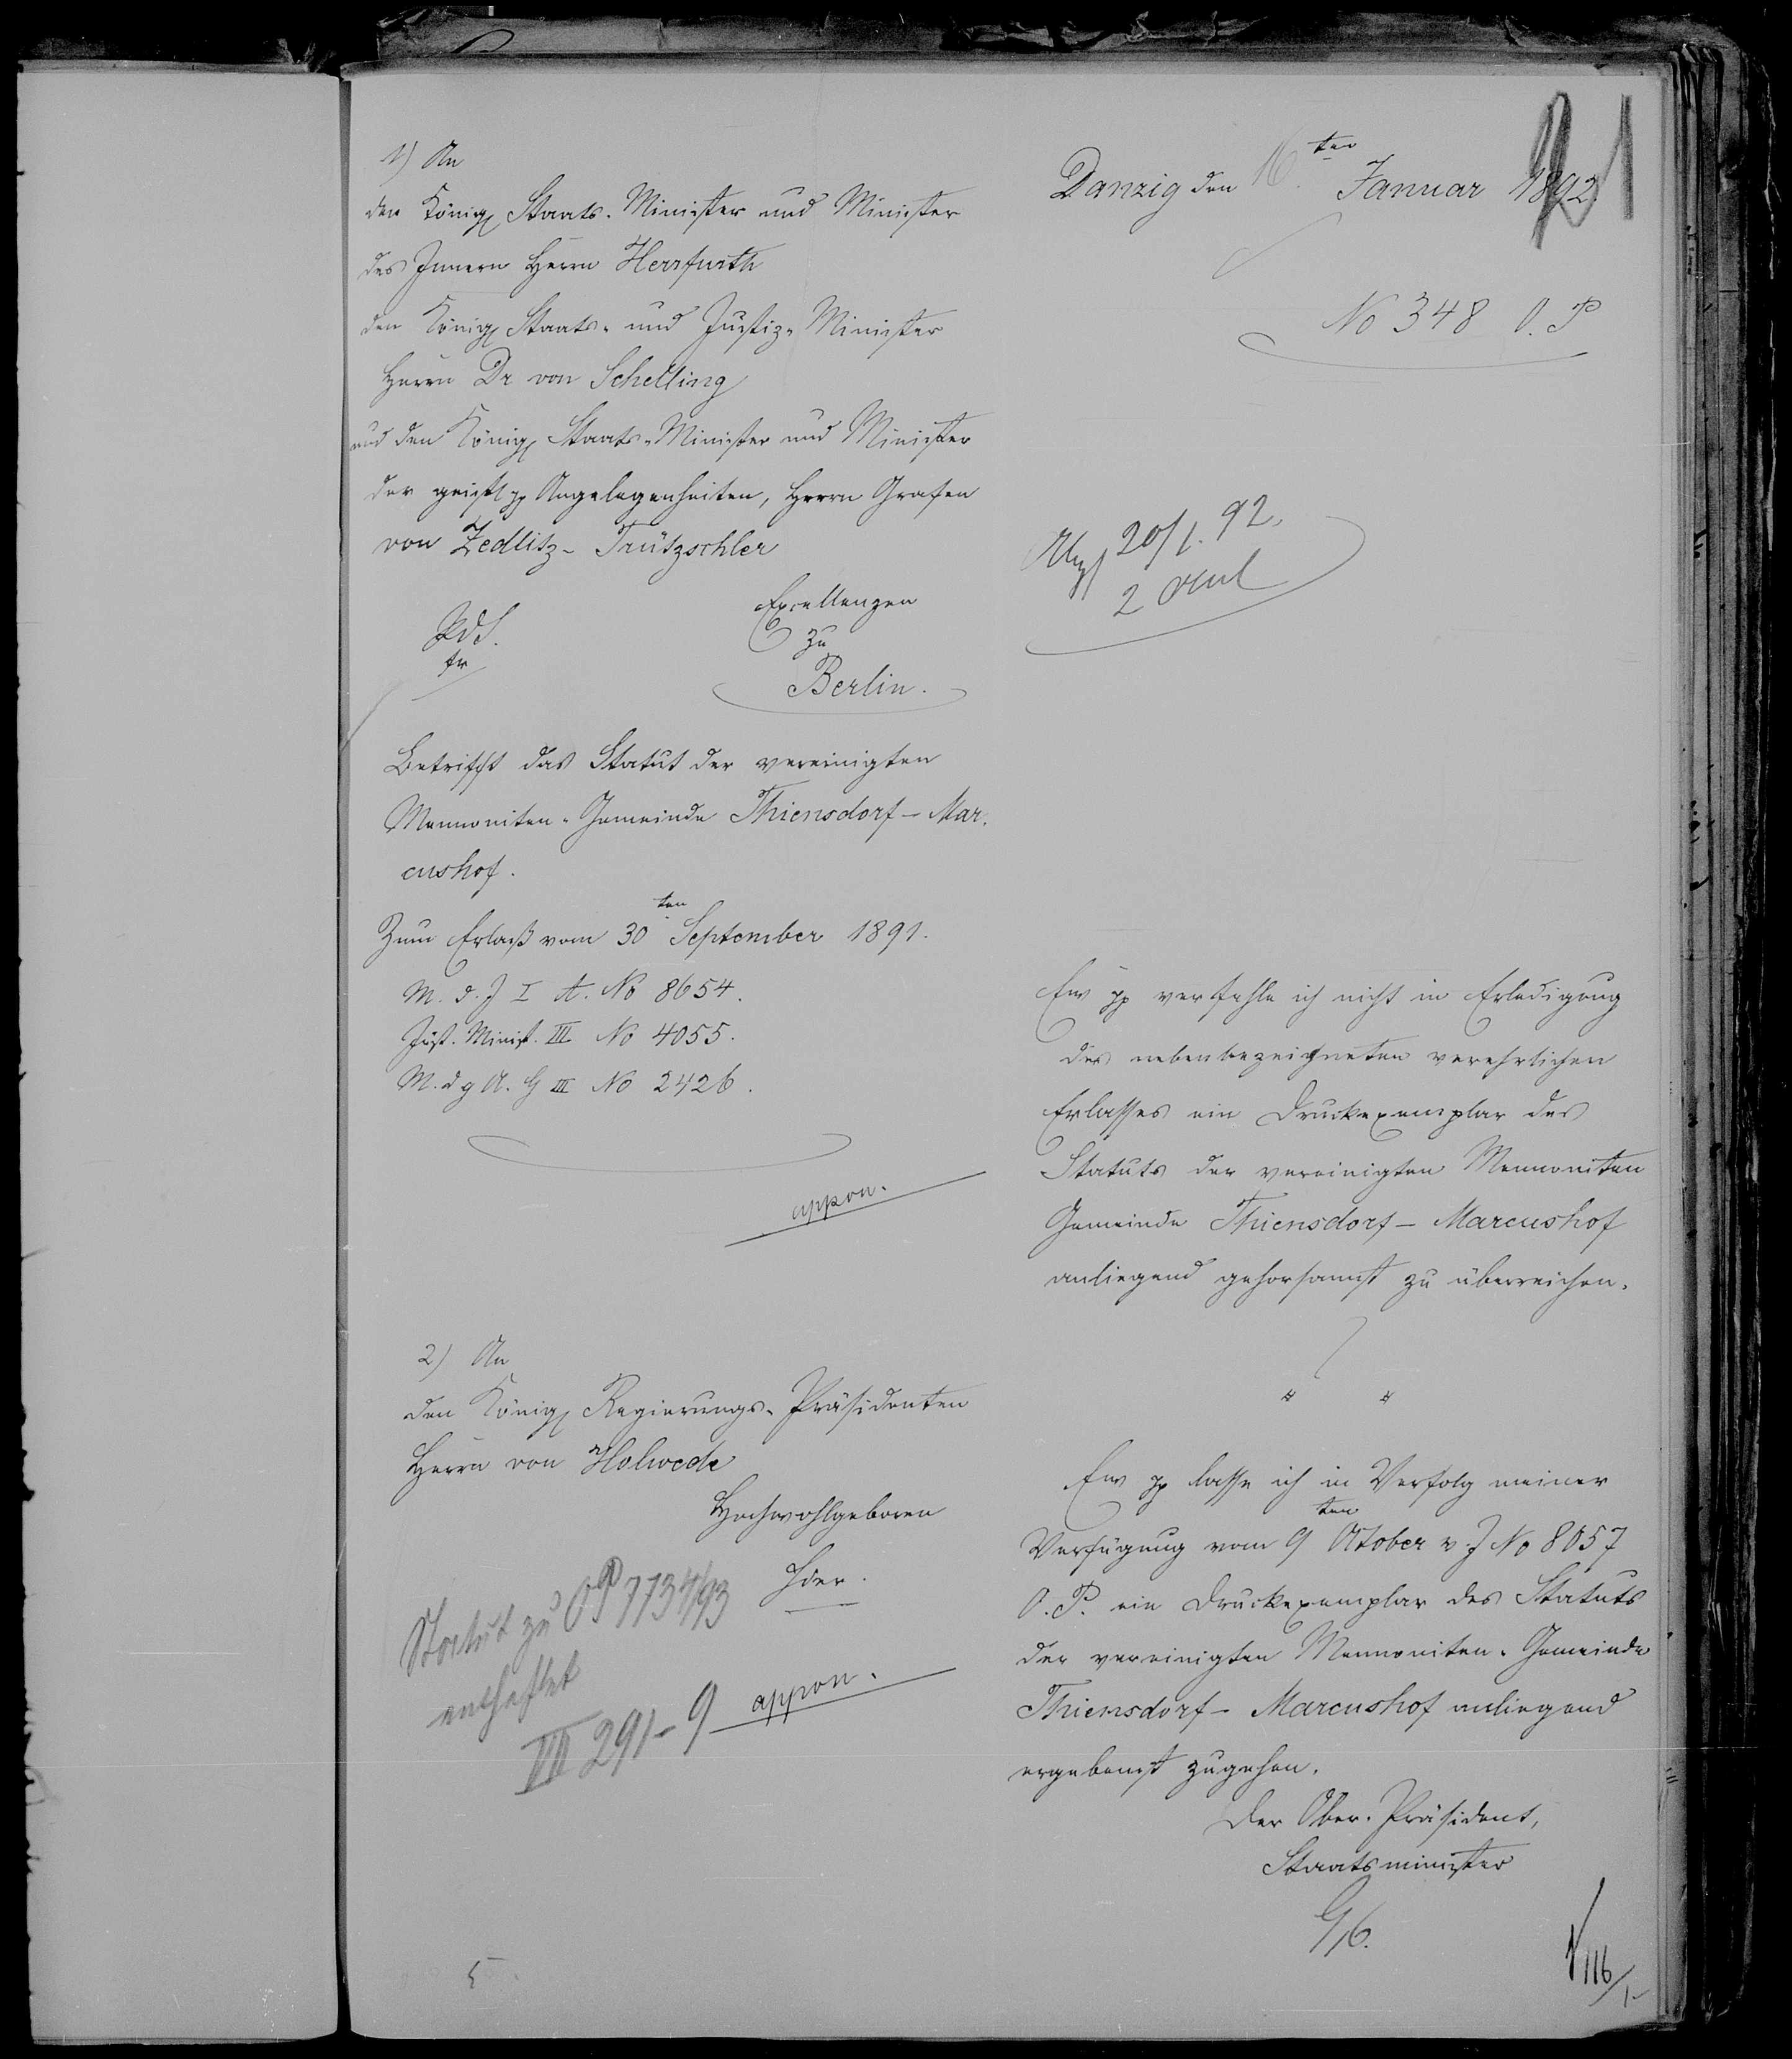 1) An
den Königl Staats-Minister und Minister
des Innern Herrn Herrfurth
den Königl Staats- und Justiz-Minister
Herrn Dr von Schelling
und den Königl Staats-Minister und Minister
der geistl pp Angelegenheiten, Herrn Grafen
von Zedlitz-Trützschler
Excellenzen
zu
Berlin.
PdS.
fr
Betrifft das Statut der vereinigten
Mennoniten-Gemeinde Thiensdorf-Mar-
cushof.
Zum Erlaß vom 30ten September 1891.
M. d. J I A. No 8654.
Just. Minist. III No 4055.
M. d g A. G III No 2426.
appon.
2) An
den Königl Regierungs-Präsidenten
Herrn von Holwede
Hochwohlgeboren
hier.
Statut zu OP 7734/93
entheftet
VII 291-9
appon.
5
21
Danzig den 16ten Januar 1892.
No 348 O. P
20/1. 92.
2
Ew pp verfehle ich nicht in Erledigung
des nebenbezeichneten verehrlichen
Erlasses ein Druckexemplar des
Statuts der vereinigten Mennoniten
Gemeinde Thiensdorf-Marcushof
anliegend gehorsamst zu überreichen.
Ew pp lasse ich in Verfolg meiner
Verfügung vom 9ten October v. J No 8057
O. P. ein Druckexemplar des Statuts
der vereinigten Mennoniten-Gemeinde
Thiensdorf-Marcushof anliegend
ergebenst zugehen.
Der Ober-Präsident,
Staatsminister
G/6.